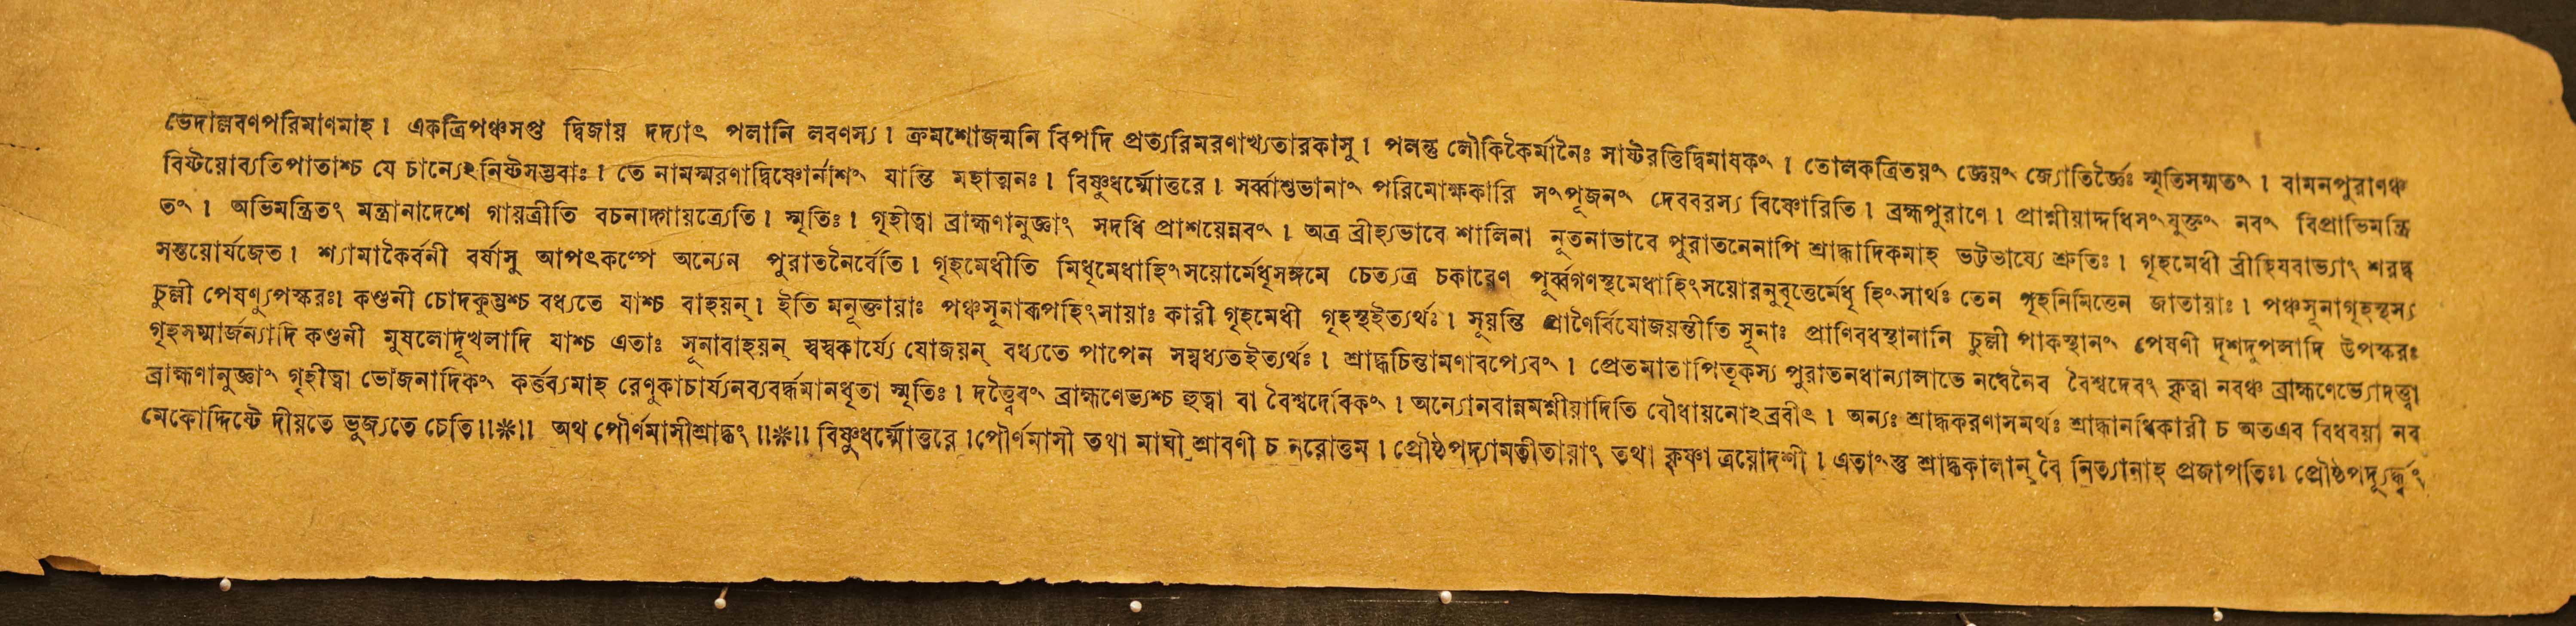 ভেদাল্লবণপরিমাণমাহ। একত্রিপঞ্চসপ্ত দ্বিজায় দদ্যাৎ পলানি লবণস্য। ক্রমশোজন্মনি বিপদি প্রত্যরিমরণাখ্যতারকাসু। পলন্তু লৌকিকৈর্মানৈঃ সাষ্টরত্তিদ্বিমাষকং। তোলকত্রিতয়ং জ্ঞেয়ং জ্যোতির্জ্ঞৈঃ স্মৃতিসম্মতং। বামনপুরাণঞ্চ
বিষ্টয়োব্যতিপাতাশ্চ যে চান্যেঽনিষ্টসম্ভবাঃ। তে নামস্মরণাদ্বিষ্ণোর্নাশং যান্তি মহাত্মনঃ। বিষ্ণুধর্ম্মোত্তরে। সর্ব্বাশুভানাং পরিমোক্ষকারি সংপূজনং দেববরস্য বিষ্ণোরিতি। ব্রহ্মপুরাণে। প্রাশ্নীয়াদ্দধিসংযুক্তং নবং বিপ্রাভিমন্ত্রি
তং। অভিমন্ত্রিতং মন্ত্রানাদেশে গায়ত্রীতি বচনাদ্গায়ত্র্যেতি। স্মৃতিঃ। গৃহীত্বা ব্রাহ্মণানুজ্ঞাং সদধি প্রাশয়েন্নবং। অত্র ব্রীহ্যভাবে শালিনা নূতনাভাবে পুরাতনেনাপি শ্রাদ্ধাদিকমাহ ভট্টভাষ্যে শ্রুতিঃ। গৃহমেধী ব্রীহিযবাভ্যাং শরদ্ব
সন্তয়োর্যজেত। শ্যামাকৈর্বনী বর্ষাসু আপৎকল্পে অন্যেন পুরাতনৈর্বেতি। গৃহমেধীতি মিধৃমেধাহিংসয়োর্মেধৃসঙ্গমে চেত্যত্র চকারেণ পূর্ব্বগণস্থমেধাহিংসয়োরনুবৃত্তের্মেধৃ হিংসার্থঃ তেন গৃহনিমিত্তেন জাতায়াঃ। পঞ্চসূনাগৃহস্থস্য
চুল্লী পেষণ্যুপস্করঃ। কণ্ডনী চোদকুম্ভশ্চ বধ্যতে যাশ্চ বাহয়ন্। ইতি মনূক্তায়াঃ পঞ্চসূনারূপহিংসায়াঃ কারী গৃহমেধী গৃহস্থইত্যর্থঃ। সূয়ন্তি প্রাণৈর্বিযোজয়ন্তীতি সূনাঃ প্রাণিবধস্থানানি চুল্লী পাকস্থানং পেষণী দৃশদুপলাদি উপস্করঃ
গৃহসম্মার্জন্যাদি কণ্ডনী মুষলোদূখলাদি যাশ্চ এতাঃ সূনাবাহয়ন্ স্বস্বকার্য্যে যোজয়ন্ বধ্যতে পাপেন সম্বধ্যতইত্যর্থঃ। শ্রাদ্ধচিন্তামণাবপ্যেবং। প্রেতমাতাপিতৃকস্য পুরাতনধান্যালাভে নবেনৈব বৈশ্বদেবং কৃত্বা নবঞ্চ ব্রাহ্মণেভ্যোদত্ত্বা
ব্রাহ্মণানুজ্ঞাং গৃহীত্বা ভোজনাদিকং কর্ত্তব্যমাহ রেণুকাচার্য্যনব্যবর্দ্ধমানধৃতা স্মৃতিঃ। দত্ত্বৈবং ব্রাহ্মণেভ্যশ্চ হুত্বা বা বৈশ্বদেবিকং। অন্যোনবান্নমশ্নীয়াদিতি বৌধায়নোঽব্রবীৎ। অন্যঃ শ্রাদ্ধকরণাসমর্থঃ শ্রাদ্ধানধিকারী চ অতএব বিধবয়া নব
মেকোদ্দিষ্টে দীয়তে ভুজ্যতে চেতি॥❋॥ অথ পৌর্ণমাসীশ্রাদ্ধং॥❋॥ বিষ্ণুধর্ম্মোত্তরে। পৌর্ণমাসী তথা মাঘী শ্রাবণী চ নরোত্তম। প্রৌষ্ঠপদ্যামতীতায়াং তথা কৃষ্ণা ত্রয়োদশী। এতাংস্তু শ্রাদ্ধকালান্ বৈ নিত্যানাহ প্রজাপতিঃ। প্রৌষ্ঠপদ্যূর্দ্ধং